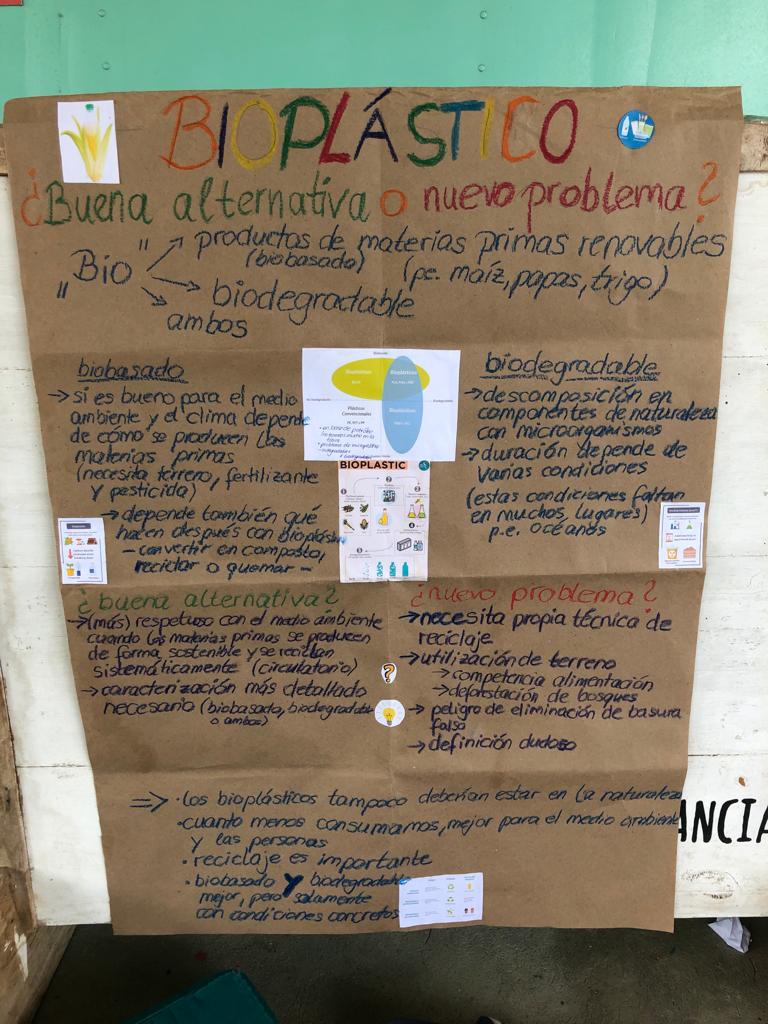 BIOPLÁSTICO
¿Buena alternativa o nuevo problema?
"Bio"
productos de materias primas renovables
(biobasado) (pe. maíz, papas, trigo)
biodegradable
ambos
biobasado
→ si es bueno para el medio
ambiente y el clima depende
de cómo se producen las
materias primas
(necesita terreno, fertilizante
y pesticida)
→ depende también qué
hacen después con bioplástico
– convertir en composta,
reciclar o quemar –
Bioplásticos
Bioplásticos
Plásticos
Convencionales
Bioplásticos
BIOPLASTIC
1
2
3
4
5
biodegradable
→ descomposición en
componentes de naturaleza
con microorganismos
→ duración depende de
varias condiciones
(estas condiciones faltan
en muchos lugares)
p.e. océanos
¿buena alternativa?
→ (más) respetuso con el medio ambiente
cuando las materias primas se producen
de forma sostenible y se reciclan
sistemáticamente (circulatorio)
→ caracterización más detallado
necesario (biobasado, biodegradable
o ambos)
¿nuevo problema?
→ necesita propia técnica de
reciclaje
→ utilización de terreno
→ competencia alimentación
→ deforestación de bosques
→ peligro de eliminación de basura
falsa
→ definición dudoso
?
⇒ · los bioplásticos tampoco deberían estar en la naturaleza
· cuanto menos consumamos, mejor para el medio ambiente
y las personas
· reciclaje es importante
· biobasado y biodegradable
mejor, pero solamente
con condiciones concretos
ANCIA